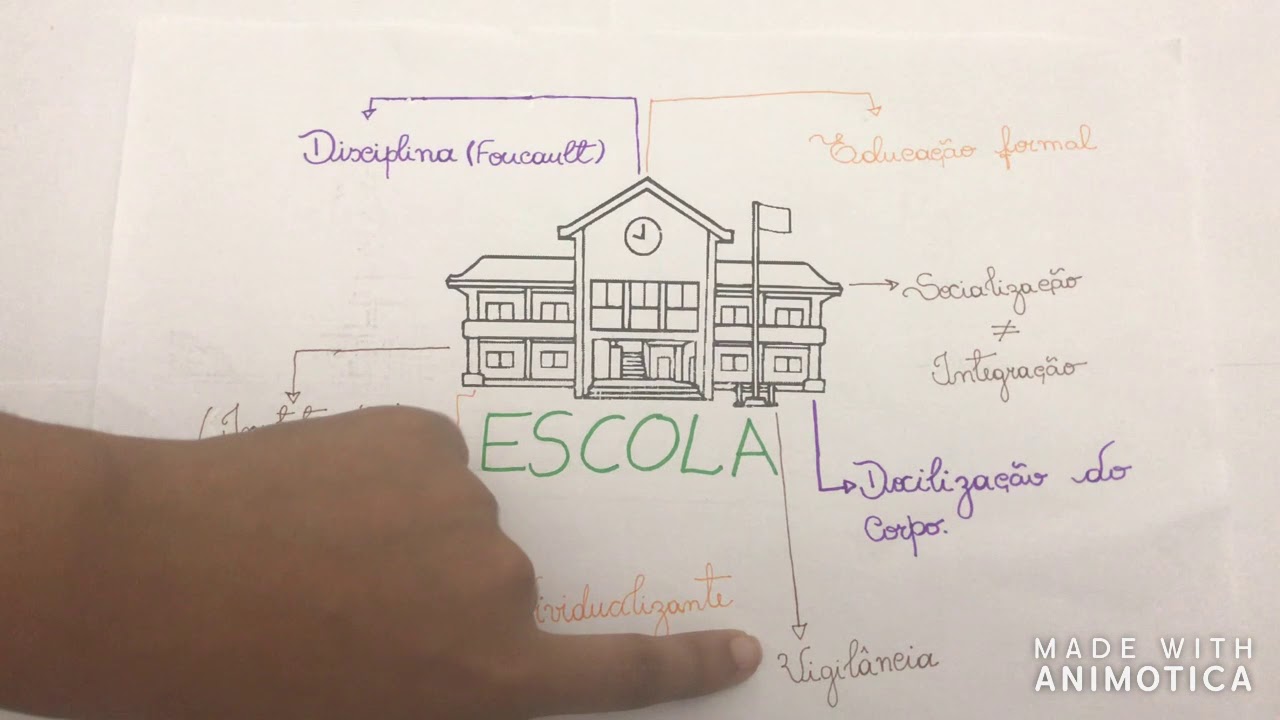 Disciplina (Foucault)
Educação formal
Socialização
≠
Integração
ESCOLA
Docilização do
corpo.
Vigilância
MADE WITH
ANIMOTICA